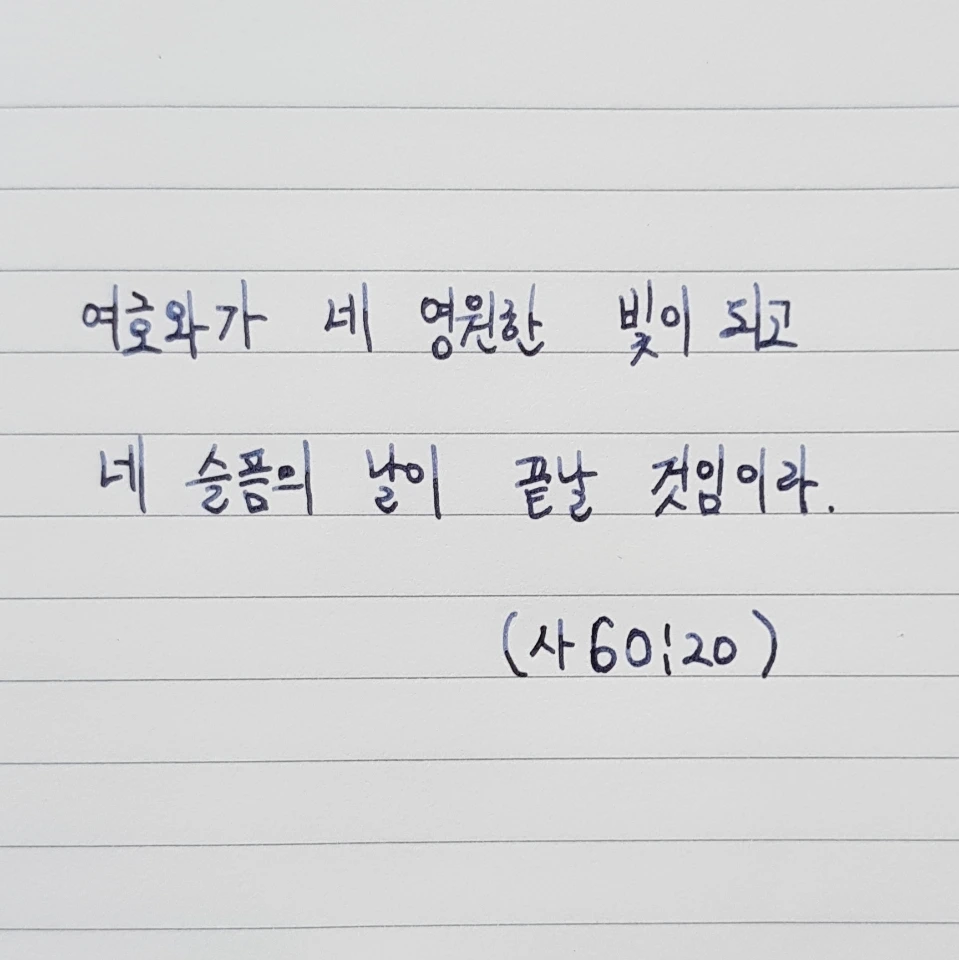 여호와가 네 영원한 빛이 되고
네 슬픔의 날이 끝날 것임이라.
(사 60:20)